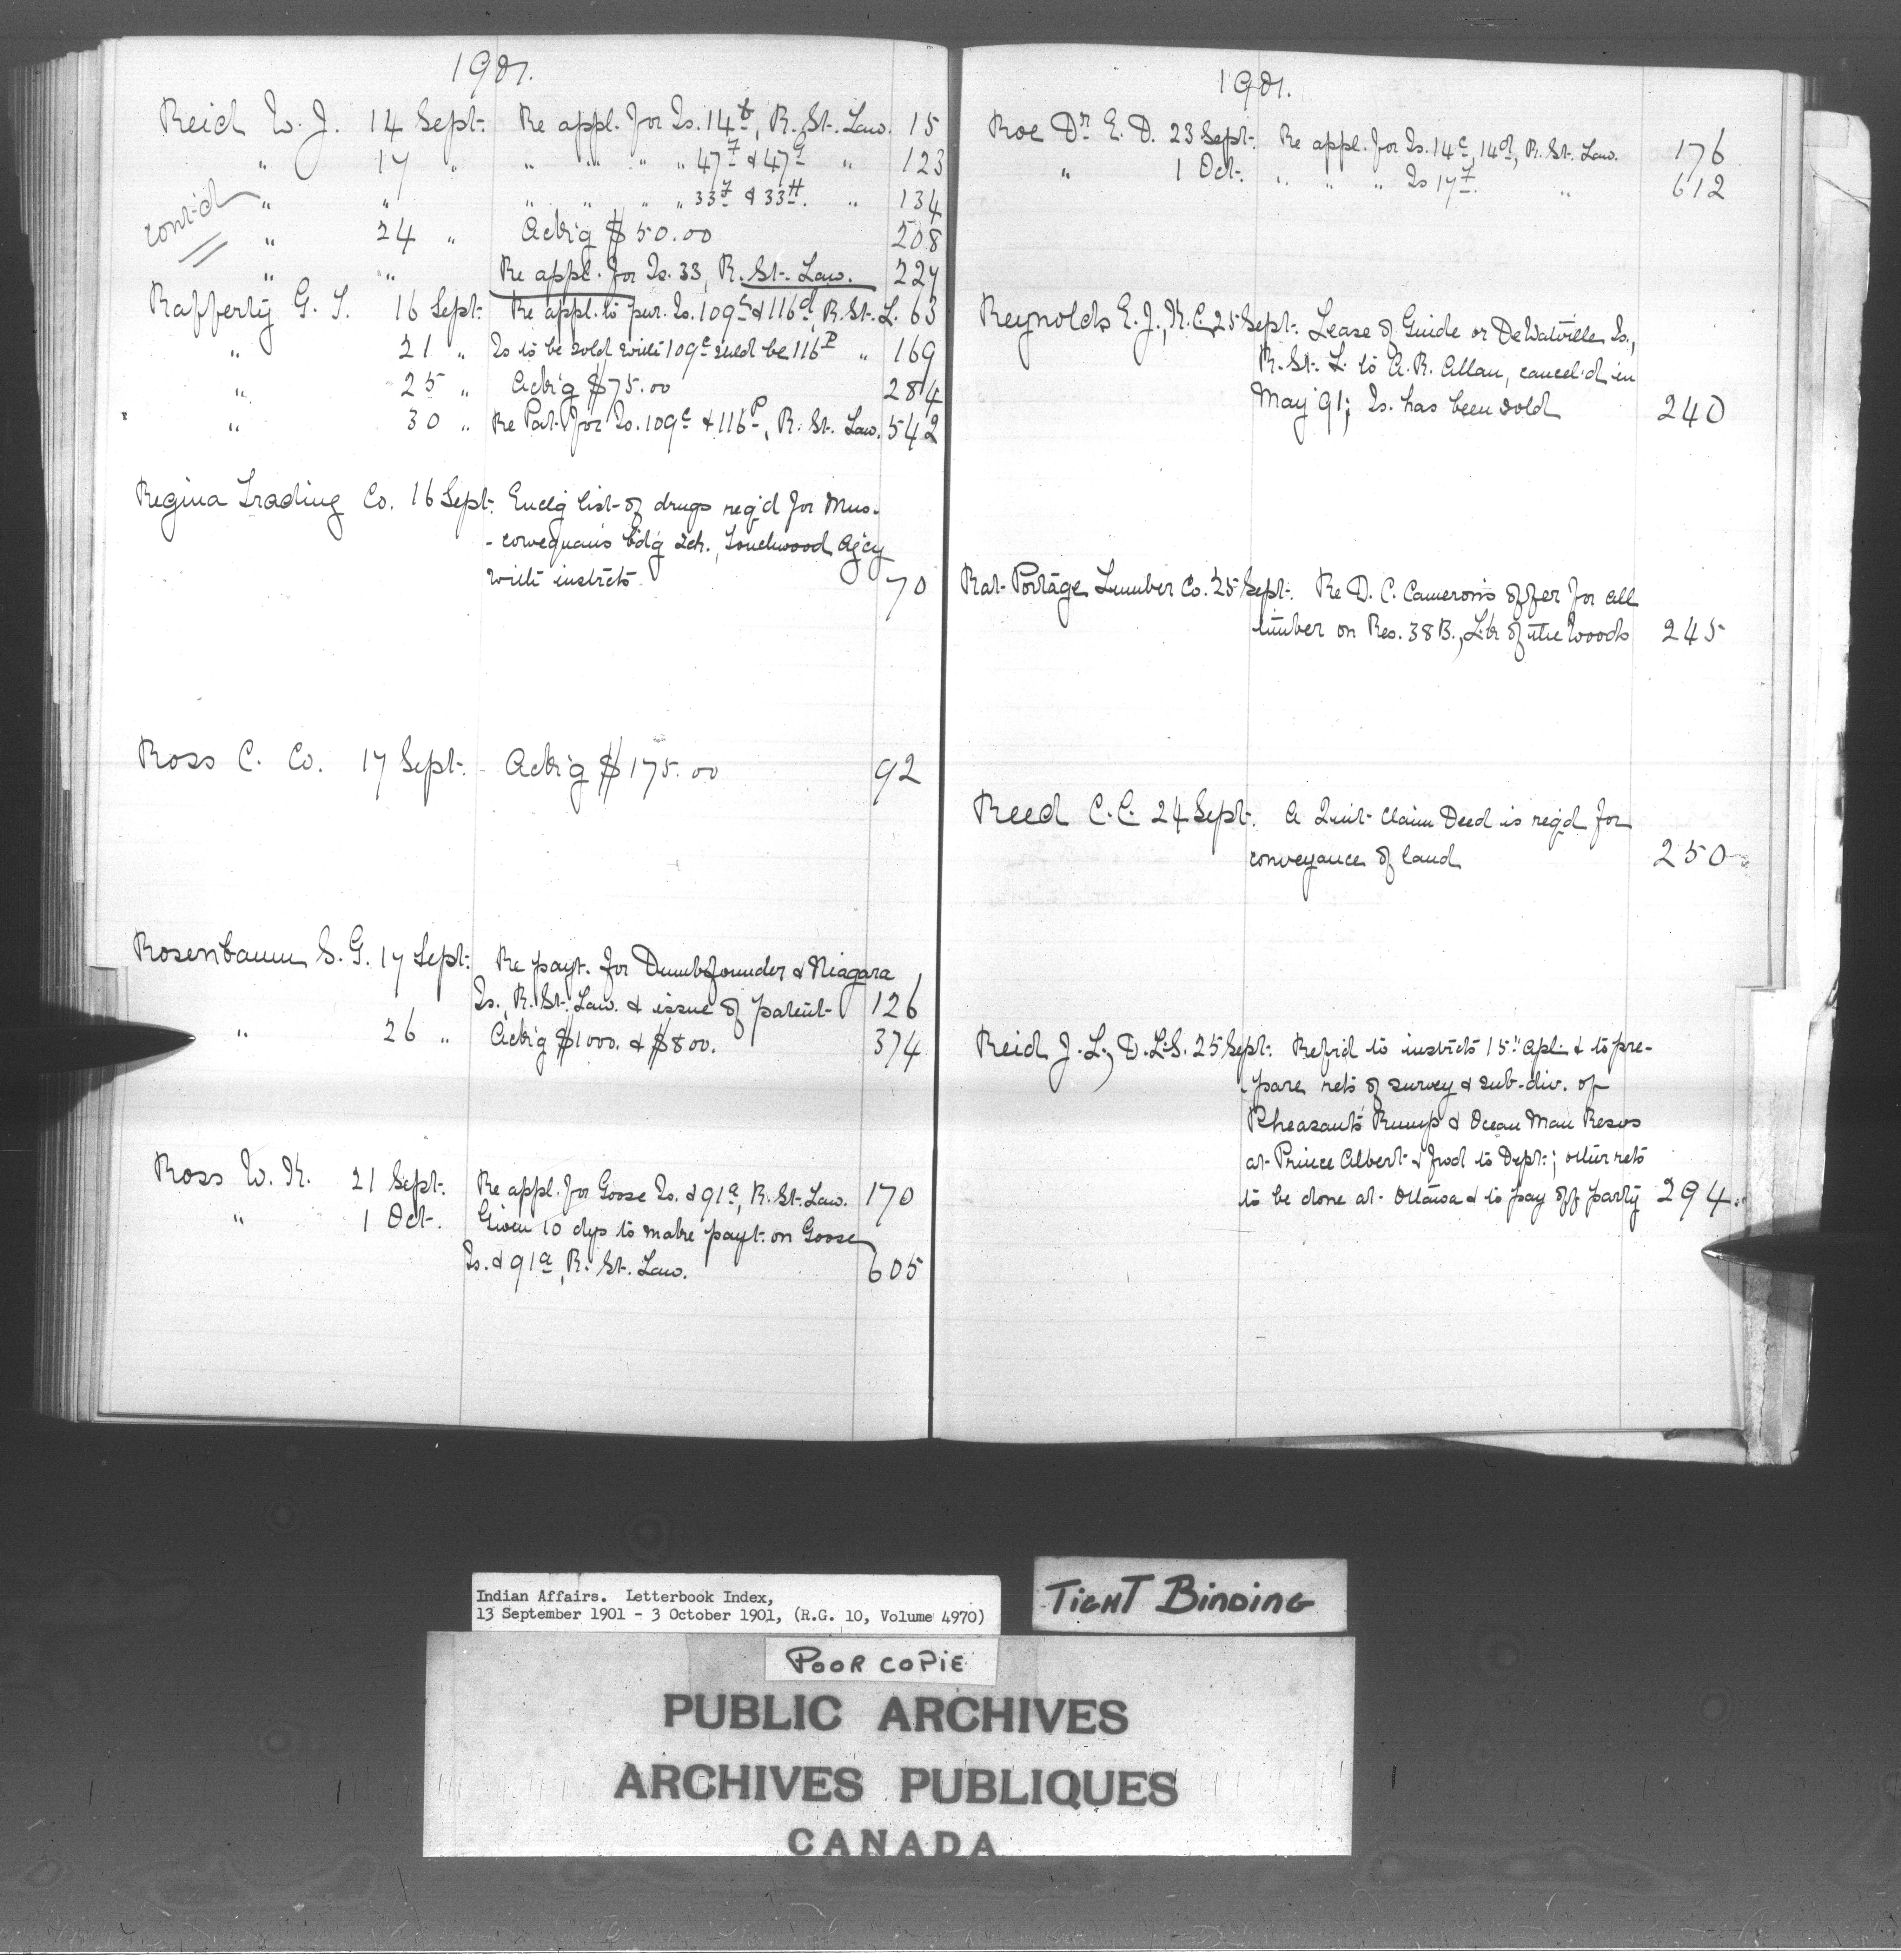 1901.
Reid W. J. 14 Sept. Re appl. for Is. 14b, R. St. Law. 15
" 17 " " " " " 47F & 47G " 123
" " " " " " 33F & 33H. " 134
cont'd
" 24 " Ack'g $50.00 208
" " Re appl. for Is. 33, R. St. Law. 227
Rafferty G. T. 16 Sept. Re appl. to pur. Is. 109c & 116d, R. St. L. 63
" 21 " Is to be sold with 109c shld be 116P " 169
" 25 " Ack'g $75.00 284
" 30 " Re Pat. for Is. 109c & 116P, R. St. Law. 542
Regina Trading Co. 16 Sept. Enclg list of drugs req'd for Mus-
-cowequan's b'd'g sch., Touchwood Ag'cy
with instrcts. 70
Ross C. Co. 17 Sept. Ack'g $175.00 92
Rosenbaum S. G. 17 Sept. Re payt. for Dumbfounder & Niagara
Is. R. St. Law. & issue of patent 126
" 26 " Ack'g $1000. & $800. 374
Ross W. K. 21 Sept. Re appl. for Goose Is. & 91a, R. St. Law. 170
" 1 Oct. Given 10 dys to make payt. on Goose
Is. & 91a, R. St. Law. 605
1901.
Roe Dr. E. D. 23 Sept. Re appl. for Is. 14c, 14d, R. St. Law. 176
" 1 Oct. " " " Is 17F. " 612
Reynolds E. J., K.C. 25 Sept. Lease of Guide or DeWatville Is.,
R. St. L. to A. R. Allan, cancel'd in
May '91; Is. has been sold 240
Rat Portage Lumber Co. 25 Sept. Re D. C. Cameron's offer for all
timber on Res. 38B., Lk of the Woods 245
Reed C. C. 24 Sept. A Quit Claim Deed is req'd for
conveyance of land 250
Reid J. L., D.L.S. 25 Sept. Ref'r'd to instrcts 15" Apl. & to pre-
-pare rets of survey & sub-div. of
Pheasant's Rump & Ocean Man Resvs
at Prince Albert & fwd to Dept.; other rets
to be done at Ottawa & to pay off party 294
Indian Affairs. Letterbook Index,
13 September 1901 - 3 October 1901, (R.G. 10, Volume 4970)
TIGHT BINDING
POOR COPIE
PUBLIC ARCHIVES
ARCHIVES PUBLIQUES
CANADA